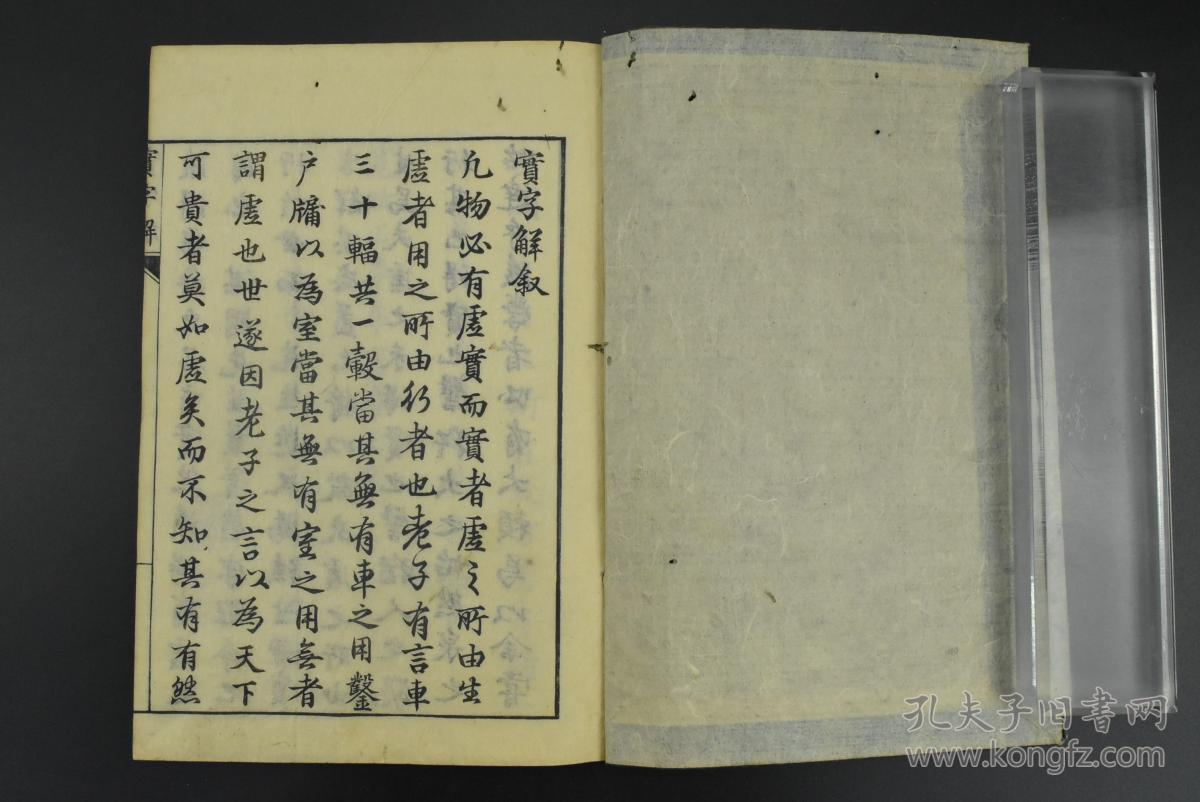 實字解叙
凡物必有虛實而實者虛之所由生
虛者用之所由行者也老子有言車
三十輻共一轂當其無有車之用鑿
户牖以為室當其無有室之用無者
謂虛也世遂因老子之言以為天下
可貴者莫如虛矣而不知其有有然
實字解
孔夫子旧书网
www.kongfz.com